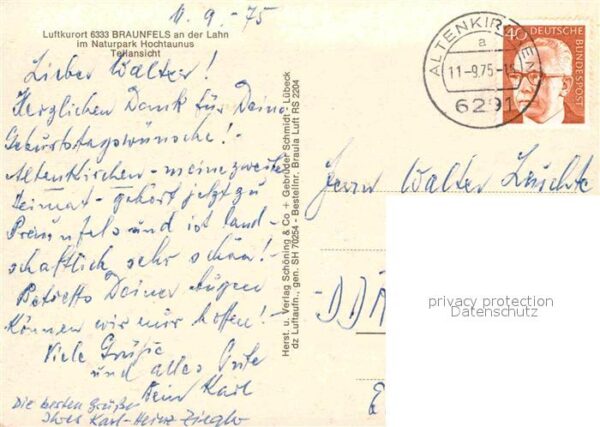 11. 9. - 75
Luftkurort 6333 BRAUNFELS an der Lahn
im Naturpark Hochtaunus
Teilansicht
Lieber Walter!
Herzlichen Dank für Deine
Geburtstagswünsche! -
Altenkirchen - meine zweite
Heimat - gehört jetzt zu
Braunfels und ist land-
schaftlich sehr schön! -
Betreffs Deiner Augen
können wir nur hoffen! -
Viele Grüße
und alles Gute
Dein Karl
Die besten Grüße
Ihres Karl-Heinz Ziegler
Herst. u. Verlag Schöning & Co + Gebrüder Schmidt - Lübeck
dz Luftaufn., gen. SH 70254 - Bestellnr. Braula Luft RS 2204
ALTENKIRCHEN
a
11-9.75-15
6291
40 DEUTSCHE
BUNDESPOST
Herrn Walter
DD
privacy protection
Datenschutz